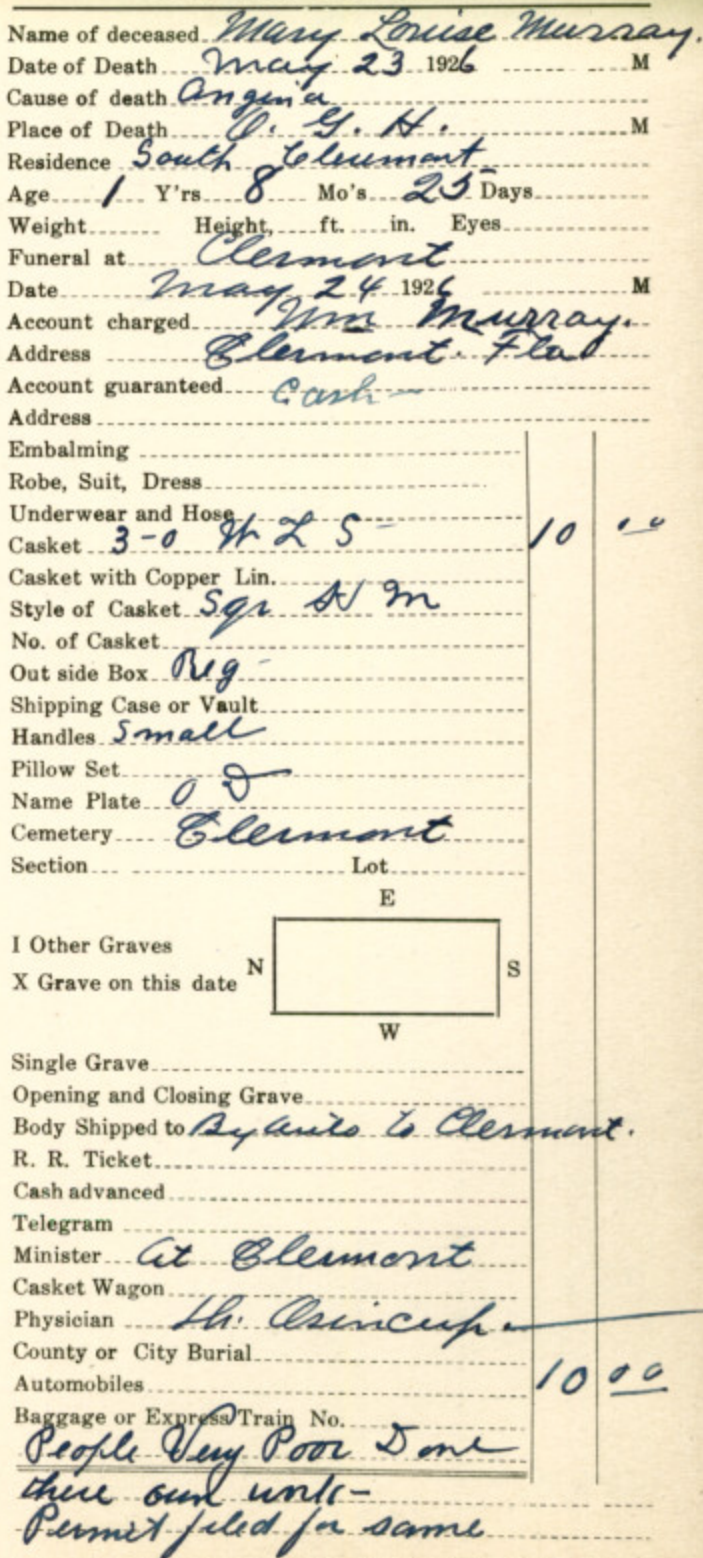 Name of deceased Mary Louise Murray.
Date of Death May 23 1926 M
Cause of death Angina
Place of Death O. G. H. M
Residence South Clermont
Age 1 Y'rs 8 Mo's 25 Days
Weight Height, ft. in. Eyes
Funeral at Clermont
Date May 24 1926 M
Account charged Wm Murray.
Address Clermont. Fla
Account guaranteed Cash-
Address
Embalming
Robe, Suit, Dress
Underwear and Hose
Casket 3-0 W L S - 10 00
Casket with Copper Lin.
Style of Casket Sqr M
No. of Casket
Out side Box Reg -
Shipping Case or Vault
Handles Small
Pillow Set
Name Plate O D
Cemetery Clermont
Section Lot
E
I Other Graves
N S
X Grave on this date
W
Single Grave
Opening and Closing Grave
Body Shipped to By auto to Clermont.
R. R. Ticket
Cash advanced
Telegram
Minister At Clermont
Casket Wagon
Physician Osincup.
County or City Burial
Automobiles 10 00
Baggage or Express Train No.
People Very Poor Done
there own work-
Permit filed for same